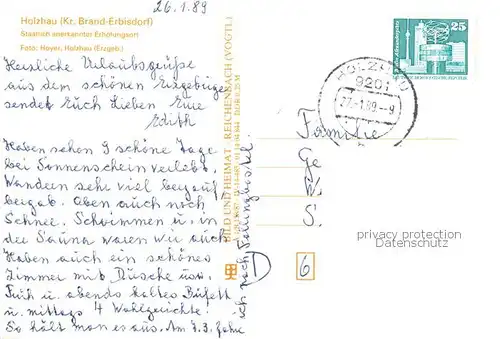 26.1.89
Holzhau (Kr. Brand-Erbisdorf)
Staatlich anerkannter Erholungsort
Foto: Hoyer, Holzhau (Erzgeb.)
Herzliche Urlaubsgrüße
aus dem schönen Erzgebirge
sendet Euch Lieben Eure
Edith
Haben schon 9 schöne Tage
bei Sonnenschein verlebt.
Wandern sehr viel bergauf
bergab. Aben auch noch
Schnee. Schwimmen u. in
der Sauna waren wir auch
Haben auch ein schönes
Zimmer mit Dusche usw.
Früh u. abends kaltes Büfett
u. mittags 4 Wahlgerichte!
So hält man es aus. Am 7.3. fahre
ich nach Fallingbostel.
BILD UND HEIMAT REICHENBACH (VOGTL)
25
HOLZHAU
9201
27.-1.89.--9
Familie
G
W
S.
privacy protection
Datenschutz
D
6